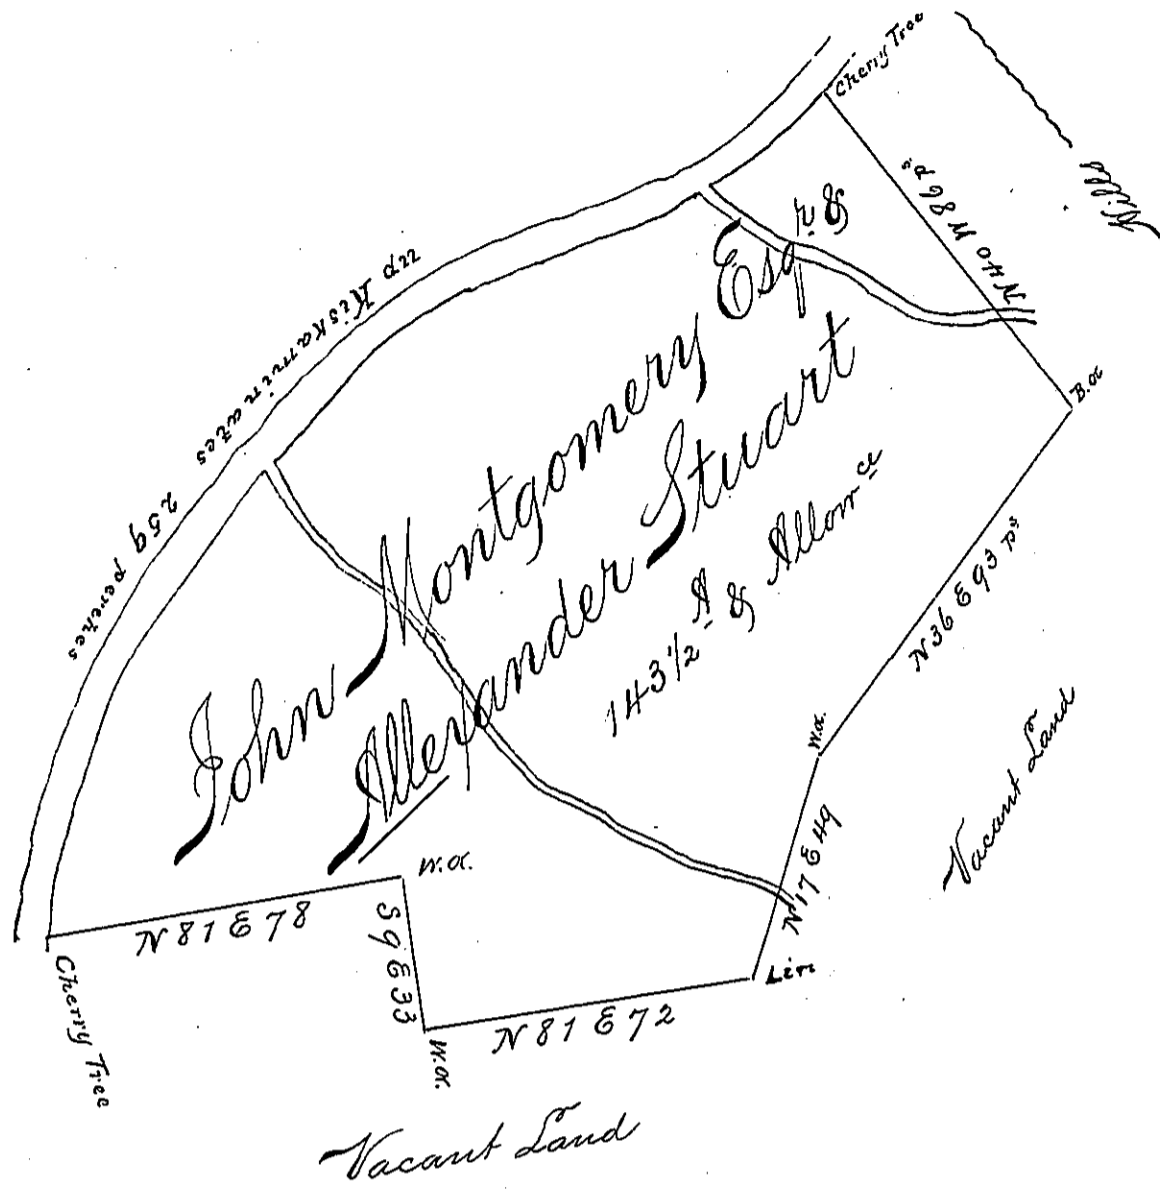 Cherry Tree
N 40 W 86 Ps
Hills
up Kiskaminates
259 perches
John Montgomery Esqr &
Allexander Stuart
143 1/2 A & Allowce
B.O
N 36 E 93 Ps
W.O.
N 17 E 49
Vacant Land
W.O.
N 81 E 78
S 9 E 33
Lin
N 81 E 72
W.O.
Cherry Tree
Vacant Land